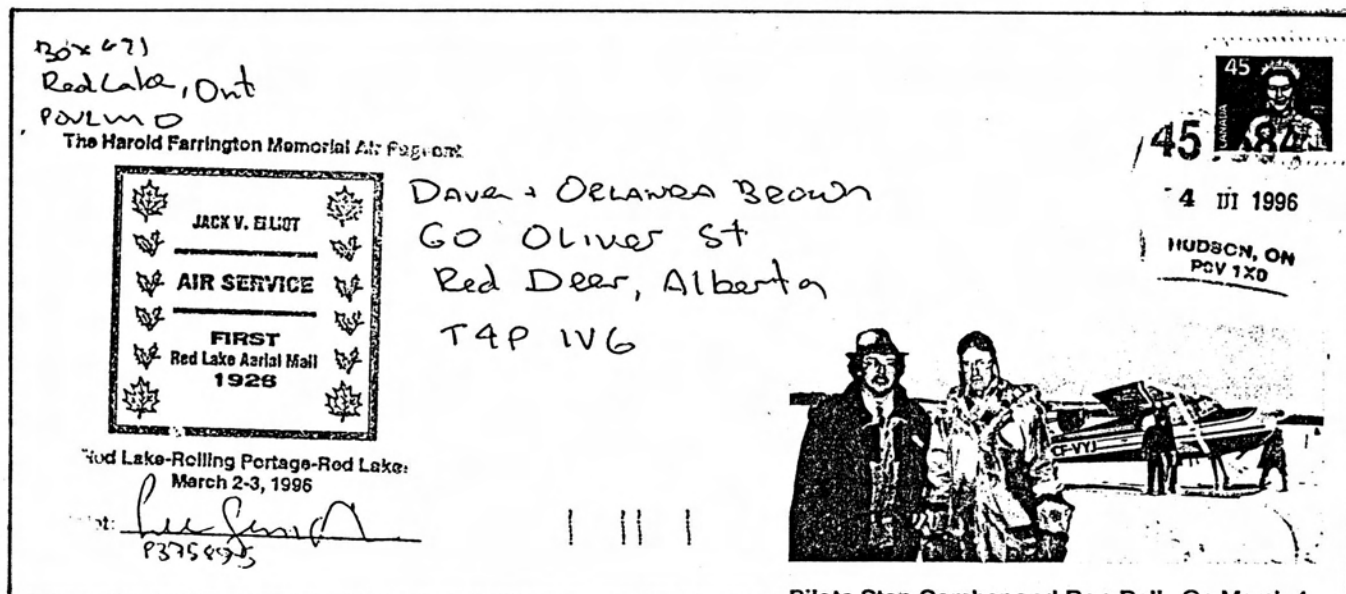 Box 671
Red Lake, Ont
P0V2M0
The Harold Farrington Memorial Air Pageant
JACK V. ELLIOT
AIR SERVICE
FIRST
Red Lake Aerial Mail
1926
Red Lake-Rolling Portage-Red Lake
March 2-3, 1996
DAVE + ORLANDA BROWN
60 OLIVER St
Red Deer, Alberta
T4P 1V6
45
CANADA
45 84
4 III 1996
HUDSON, ON
P0V 1X0
CF-VYJ